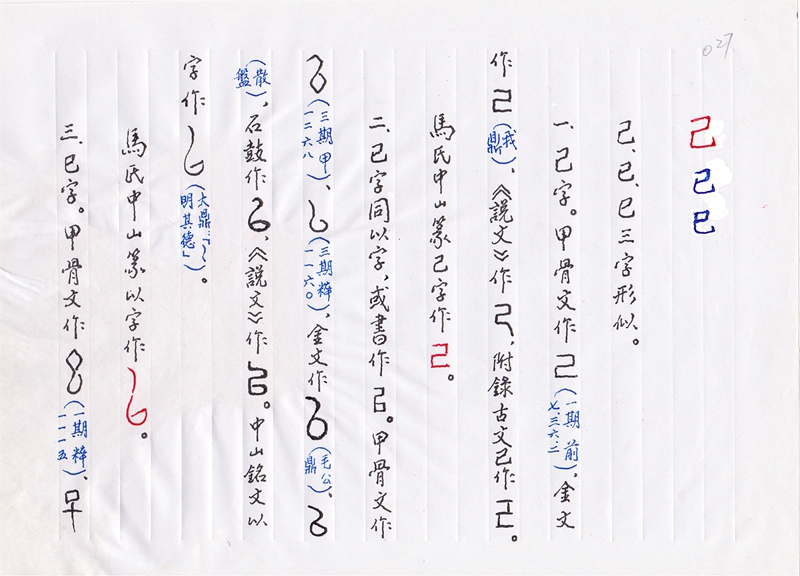 027
己已巳
己、已、巳三字形似。
一、己字。甲骨文作己(一期前七.三六.二)，金文
作己(我鼎)，《說文》作己，附錄古文己作己。
馬氏中山篆己字作己。
二、已字同以字，或書作㠯。甲骨文作
(三期甲一二六八)、(三期粹一一六〇)，金文作(毛公鼎)、
(散盤)，石鼓作，《說文》作㠯。中山銘文以
字作(大鼎：「明其德」)。
馬氏中山篆以字作。
三、巳字。甲骨文作(一期粹一一一五)、